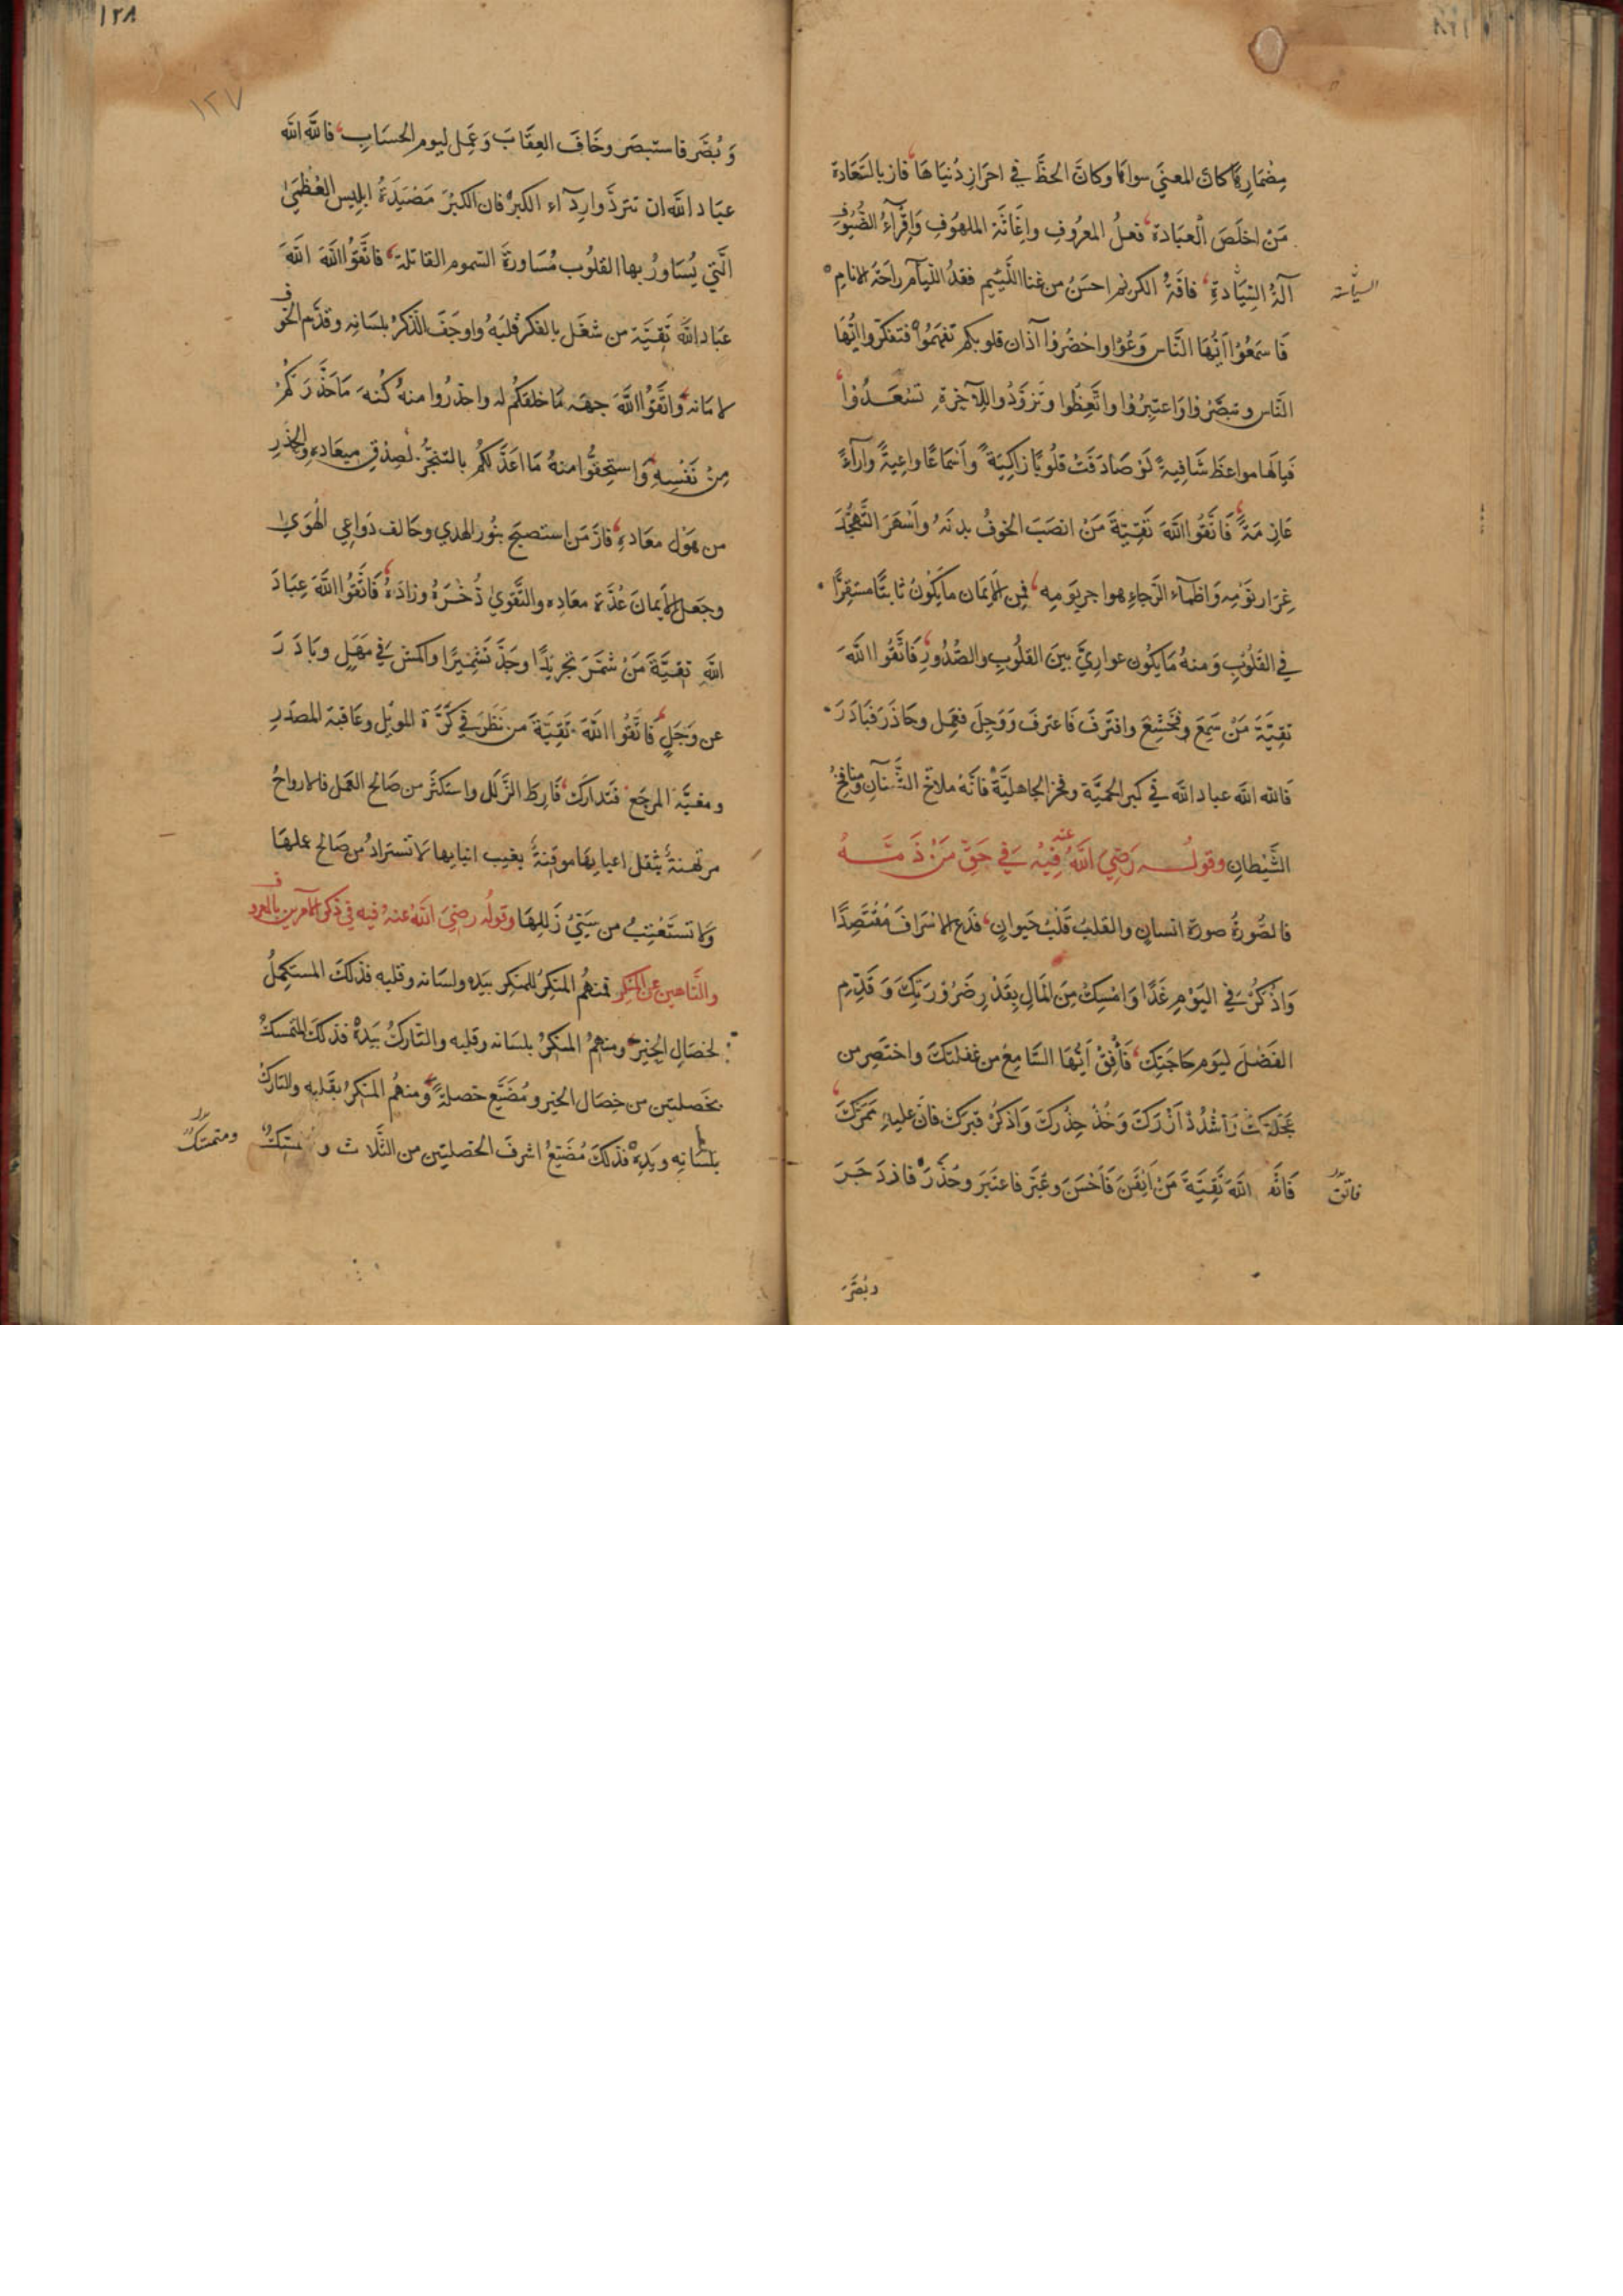 مِضْمَارِهَا كانَ المعنيَ سواهَا وكانَ الحظَّ في احرَازِ دُنيَاهَا، فازَ بالسَّعَادة
مَنْ اخلَصَ الْعبَادة، فعلُ المعرُوفِ واغَاثَة الملهُوفِ وَاِقْرآءُ الضُّيُوف
آلةُ السِّيَادةِ، فاقَةُ الكريْم احسَنُ من غنا اللَّئيم فقدُ اللّيآم راحَةُ الانامِ
السياسة
فَاسمَعُوْا اَيُّهَا النَّاس وَعُوْا واحْضُرُوْا آذان قلوبكم تفهَمُوْا فتفكّروا ايُّهَا
النَّاس وتبصَّرْوا وَاعتبِرُوْا واتَّعِظُوا وتزوَّدُوا للآخِرَةِ تَسْعَدُوْا
فيالَها مواعظ شَافِيةً لَوْ صَادَفَتْ قلُوبًا زَاكِيَةً وَاَسْمَاعًا واعِيةً وارآءً
عَازِمَةً، فَاتَّقُوا اللَّهَ تَقِيَّةَ مَنْ انصَبَ الخوفُ بدنَهُ واَسْهَرَ التَّهَجُّدُ
غِرَار نَوْمِهِ وَاظمَآء الرَّجاءِ هواجر يَومِه، فمِن الاِيمَان مَا يَكُوْنُ ثابتًا مستقِرًّا
في القلُوْبِ وَمنهُ مَا يكُون عوارِيَّ بينَ القلُوْبِ والصُّدُورِ، فَاتَّقُوا اللَّهَ
تقيَّةَ مَنْ سَمِعَ فخَشَعَ وَاقترَفَ فَاعترفَ وَوَجِلَ فعَمِل وحَاذَرَ فَبَادَرَ
فَالله اللَّه عباد اللَّه في كبر الحميَّة وفخر الجاهليَّة فَانَّهُ ملاقحُ الشَّنآنِ ومنافخُ
الشَّيْطانِ وقولُه رَضِيَ اللَّهُ عنه فِيْهُ في حَقّ مَنْ ذَمَّهُ
فالصُّورةُ صورة انسانٍ والقلبُ قَلْبُ حَيوانٍ، فدَعِ الاسرَافَ مُقْتَصِدًا
وَاذْكُرْ في اليَوْمِ غَدًا وَامْسِكْ مِنَ المَالِ بِقَدْرِ ضَرُوْرَتِكَ وَقَدِّم
الفَضْلَ ليَوم حَاجَتِكَ، فَأَفِقْ اَيُّهَا السَّامعُ من غفلتكَ واختَصِر من
عَجلَتكَ وَاشْدُدْ اَزْرَكَ وَخُذْ حِذْرَكَ وَاذْكُرْ قبرَكَ فانَّ عليهِ مَمَرَّكَ
فَاتَّقِ اللَّهَ تَقِيَّةَ مَنْ اَيْقَنَ فَاَحْسَنَ وعُبّرَ فاعتبَرَ وحُذِّرَ فازدَجَرَ
فاتق
وبُصِّرَ
١٢٨
١٢٧
وَبُصِّر فاستبصَر وخَافَ العِقَابَ وَعَمِل ليوم الحسَابِ، فاللَّه اللَّه
عبَاد اللَّه ان تتردَّوا رِدآء الكبرْ فان الكبْرَ مَصْيَدَةُ ابليس العُظمَىٰ
الَّتِي يُسَاوِرُ بها القلوُب مُسَاورةَ السّموم القاتلة، فاتَّقوُا اللَّهَ اللَّهَ
عبَاد اللَّه تَقِيَّة من شغَل بالفكر قلبَهُ واوجَفَ الذّكرُ بلسَانِهِ وقدَّم الخوْف
لامَانه، وَاتَّقوُا اللَّهَ جهَة مَا خلقكُم له واحذرُوا منهُ كُنهَ مَا حَذَّرَكمْ
مِنْ نَفْسِهِ وَاستحِقُّوا منهُ مَا اعدَّ لكمْ بالتنجُّز لصِدْقِ ميعَادهِ والحذرِ
من هَوْل معَادهِ، فازَ مَن استصبَح بنُور الهدي وخالف دَواعِي الهَويٰ
وجعَل الايمانَ عُدَّة معَادِه والتَّقوي ذُخْرَهُ وزادَهُ، فَاتَّقُوا اللَّهَ عِبَادَ
اللَّهِ تقيَّةَ مَنْ شمَّرَ تجريْدًا وجَدَّ تشْمِيْرًا وَاكمشَ في مَهَلٍ وبَادَرَ
عن وَجَلٍ، فَاتَّقُوا اللَّهَ تَقِيَّةَ من نظَرَ في كَرَّة الموئِل وعَاقبة المصدَرِ
ومغبَّة المرجَع فتَداركَ، فَارِطَ الزَّلَل واستكثَر من صَالح العمَل فالارواحُ
مرتهَنةٌ بثقل اعبائهَا موقِنَةٌ بغيب انبائِها لا تسترادُ من صَالح عملهَا
وَلا تستَعْتِبُ من سَيّئ زَللِهَا وقولُه رضِيَ اللَّهُ عنهُ فيه في ذكر الآمرين بالمعروف
والنَّاهين عن المنكر فمنهُم المنكِرُ للمنكِر بيَده ولسَانه وقلبه فذلكَ المستكمِلُ
لخصَال الخيْر ومنهمُ المنكِرُ بلسَانه وقلبه والتّاركُ بيَدهْ فذلكَ المتمسّكُ
بخَصلتيْن من خِصَال الخير ومُضَيّع خصلةً، ومنهُم المنكِرُ بقَلبه والتاركُ
بلسَانِه ويَدِهْ فذلكَ مُضَيّعُ اشرفَ الخصلتيْن من الثَّلاث و
ومتمسّكٌ